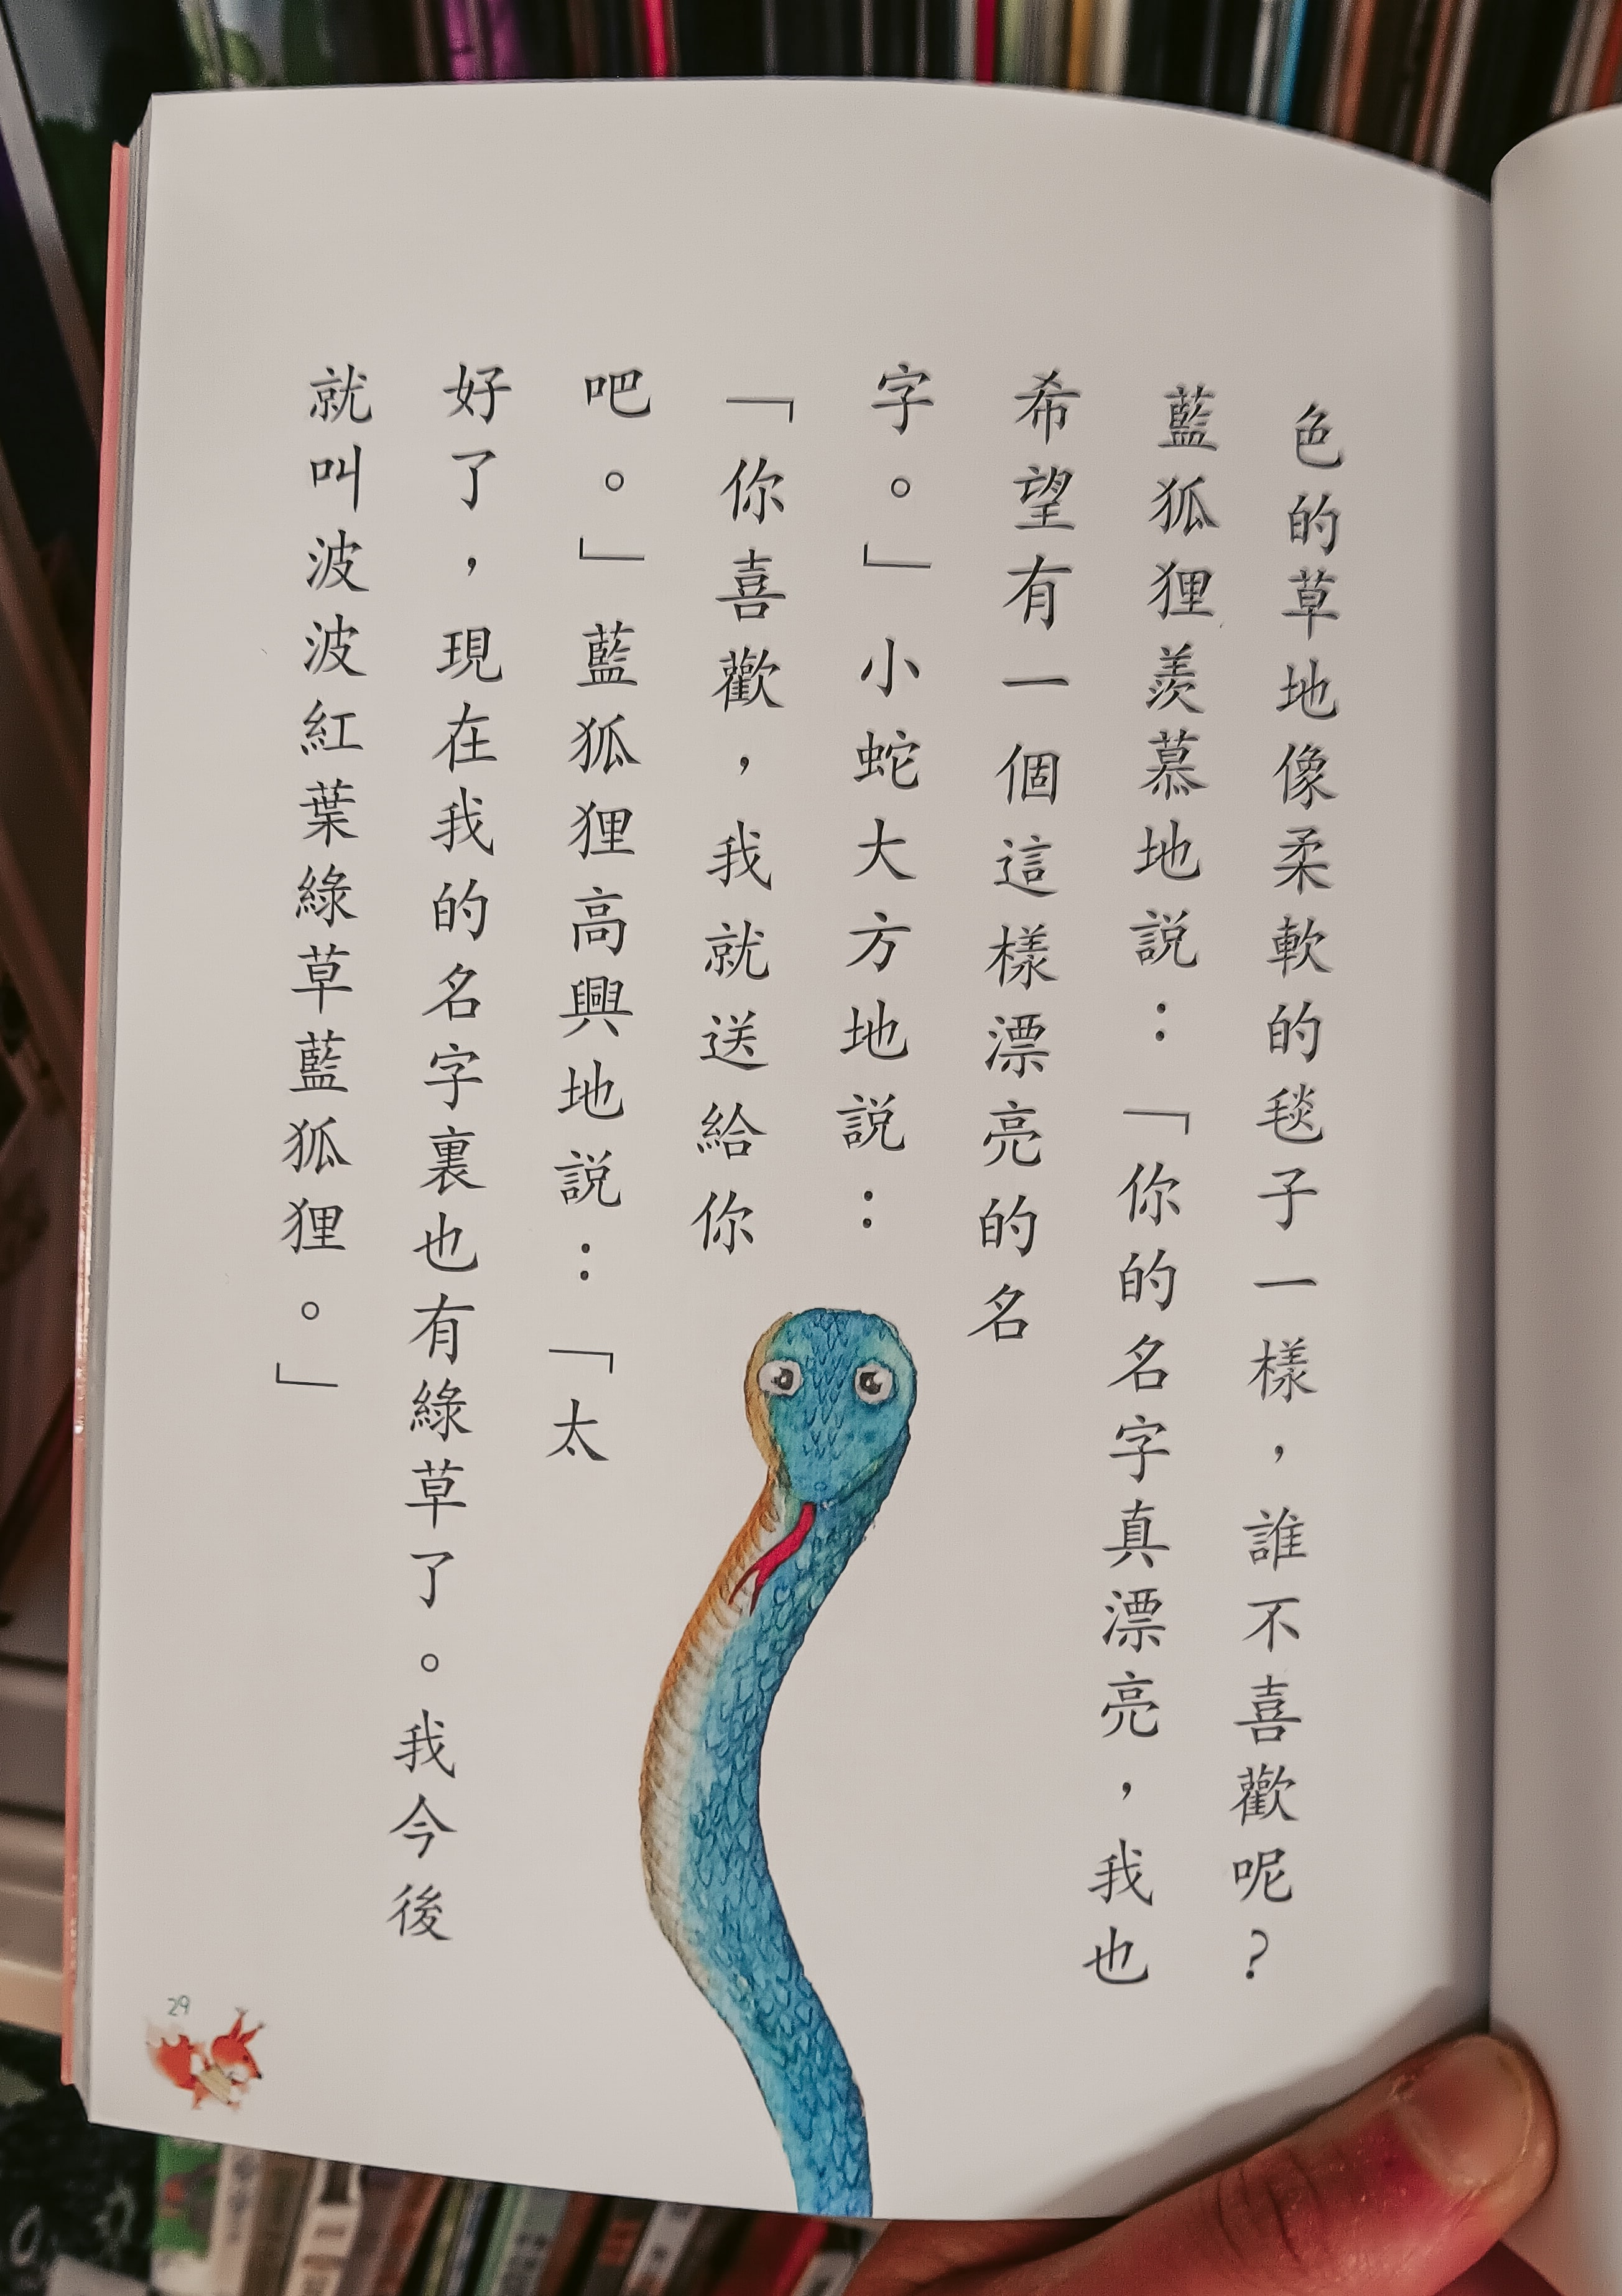 色的草地像柔軟的毯子一樣，誰不喜歡呢？
藍狐狸羨慕地説：「你的名字真漂亮，我也
希望有一個這樣漂亮的名
字。」小蛇大方地説：
「你喜歡，我就送給你
吧。」藍狐狸高興地説：「太
好了，現在我的名字裏也有綠草了。我今後
就叫波波紅葉綠草藍狐狸。」
29